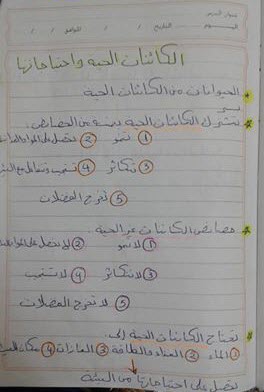 عنوان الدرس
اليوم التاريخ / / الموافق / /
الكائنات الحية واحتياجاتها
الحيوانات من الكائنات الحية
تشترك الكائنات الحية ببعض من الخصائص:
① تنمو ② تحصل على المواد الغذا
③ تتكاثر ④ تستجيب وتتفاعل مع البيئة
⑤ تخرج الفضلات
خصائص الكائنات غير الحية.
① لا تنمو ② لا تحصل على المواد
③ لا تتكاثر ④ لا تستجيب
⑤ لا تخرج الفضلات
تحتاج الكائنات الحية إلى:
① الماء ② الغذاء والطاقة ③ الغازات ④ مكان
تحصل على احتياجاتها من البيئة